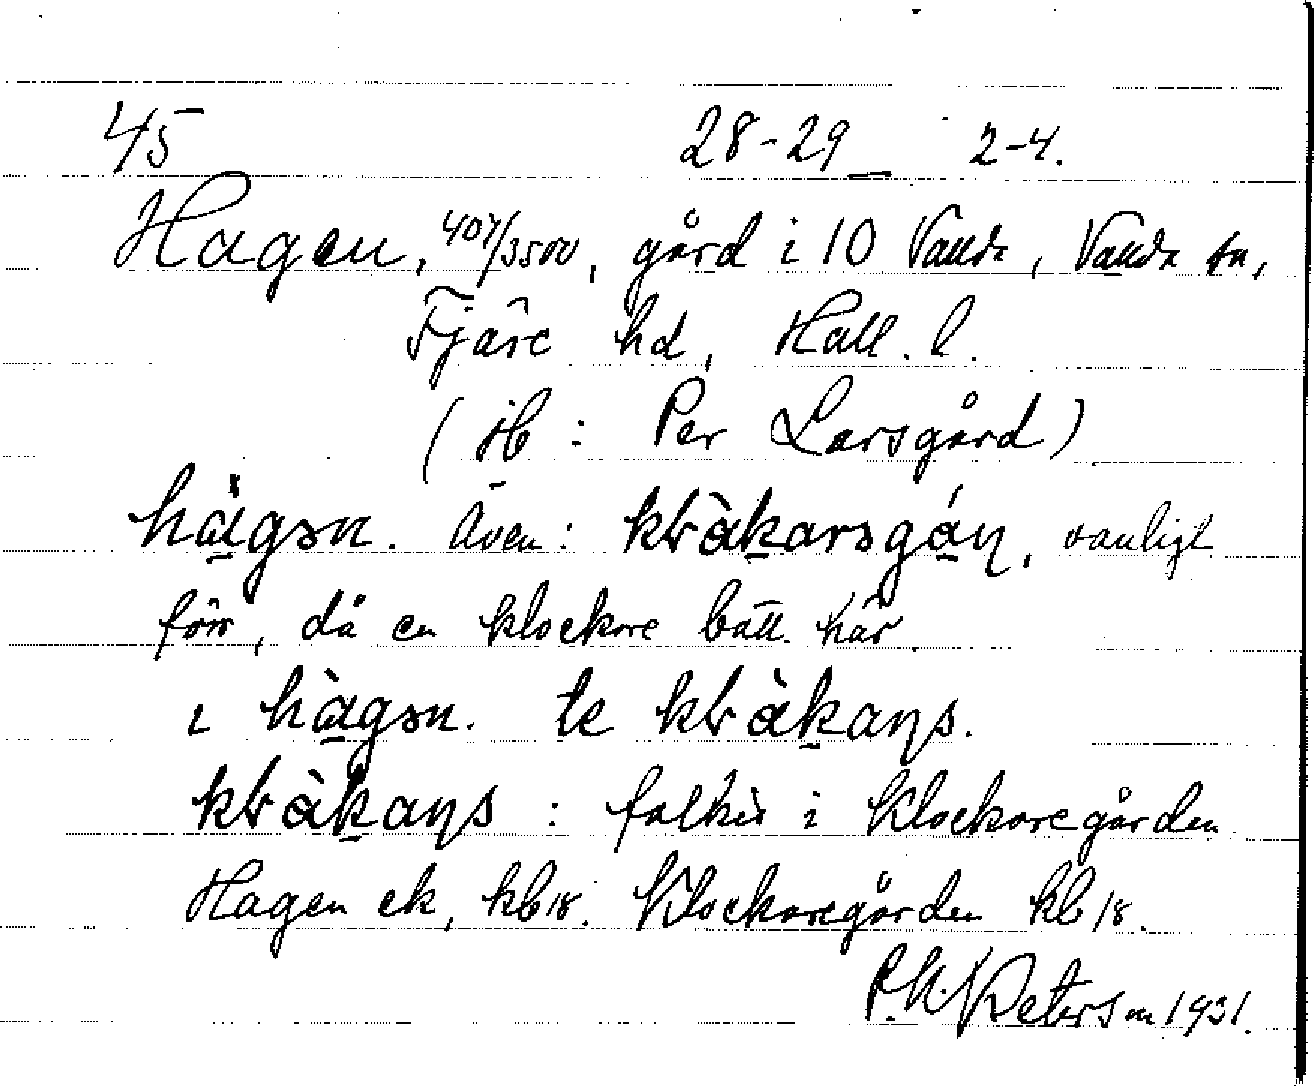 45 28-29 2-4.
Hagen, 407/3500, gård i 10 Valda, Valda sn,
Fjäre hd, Hall. l.
(Jb: Per Larsgård)
hàgən. Även: klàkarsgáɳ, vanligt
förr, då en klockare bott här
i hàgən. te klàkaɳs.
klàkaɳs: folket i Klockaregården
Hagen ek, kb 18. Klockaregården kb 18.
P. N. Peterson 1931.